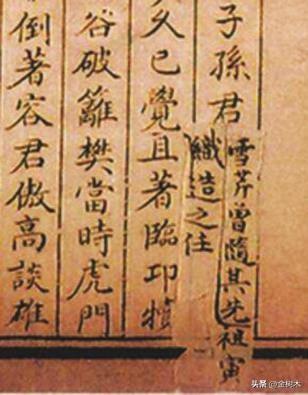 子孫君
雪芹曾隨其先祖寅
織造之任
久已覺且著臨邛犢
谷破籬樊當時虎門
倒著容君傲高談雄
头条 @金树木